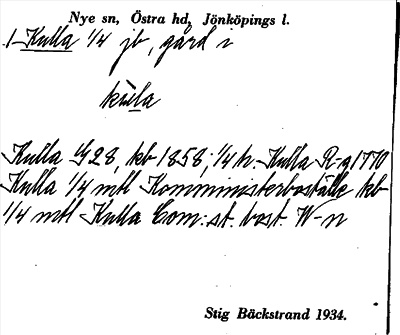 Nye sn, Östra hd, Jönköpings l.
1 Kulla 1/4 jb, gård i
kùla
Kulla G28, kb 1858; 1/4 h. Kulla R-g 1770
Kulla 1/4 mtl Komministerboställe kb
1/4 mtl Kulla Com: st. bost. W-n
Stig Bäckstrand 1934.